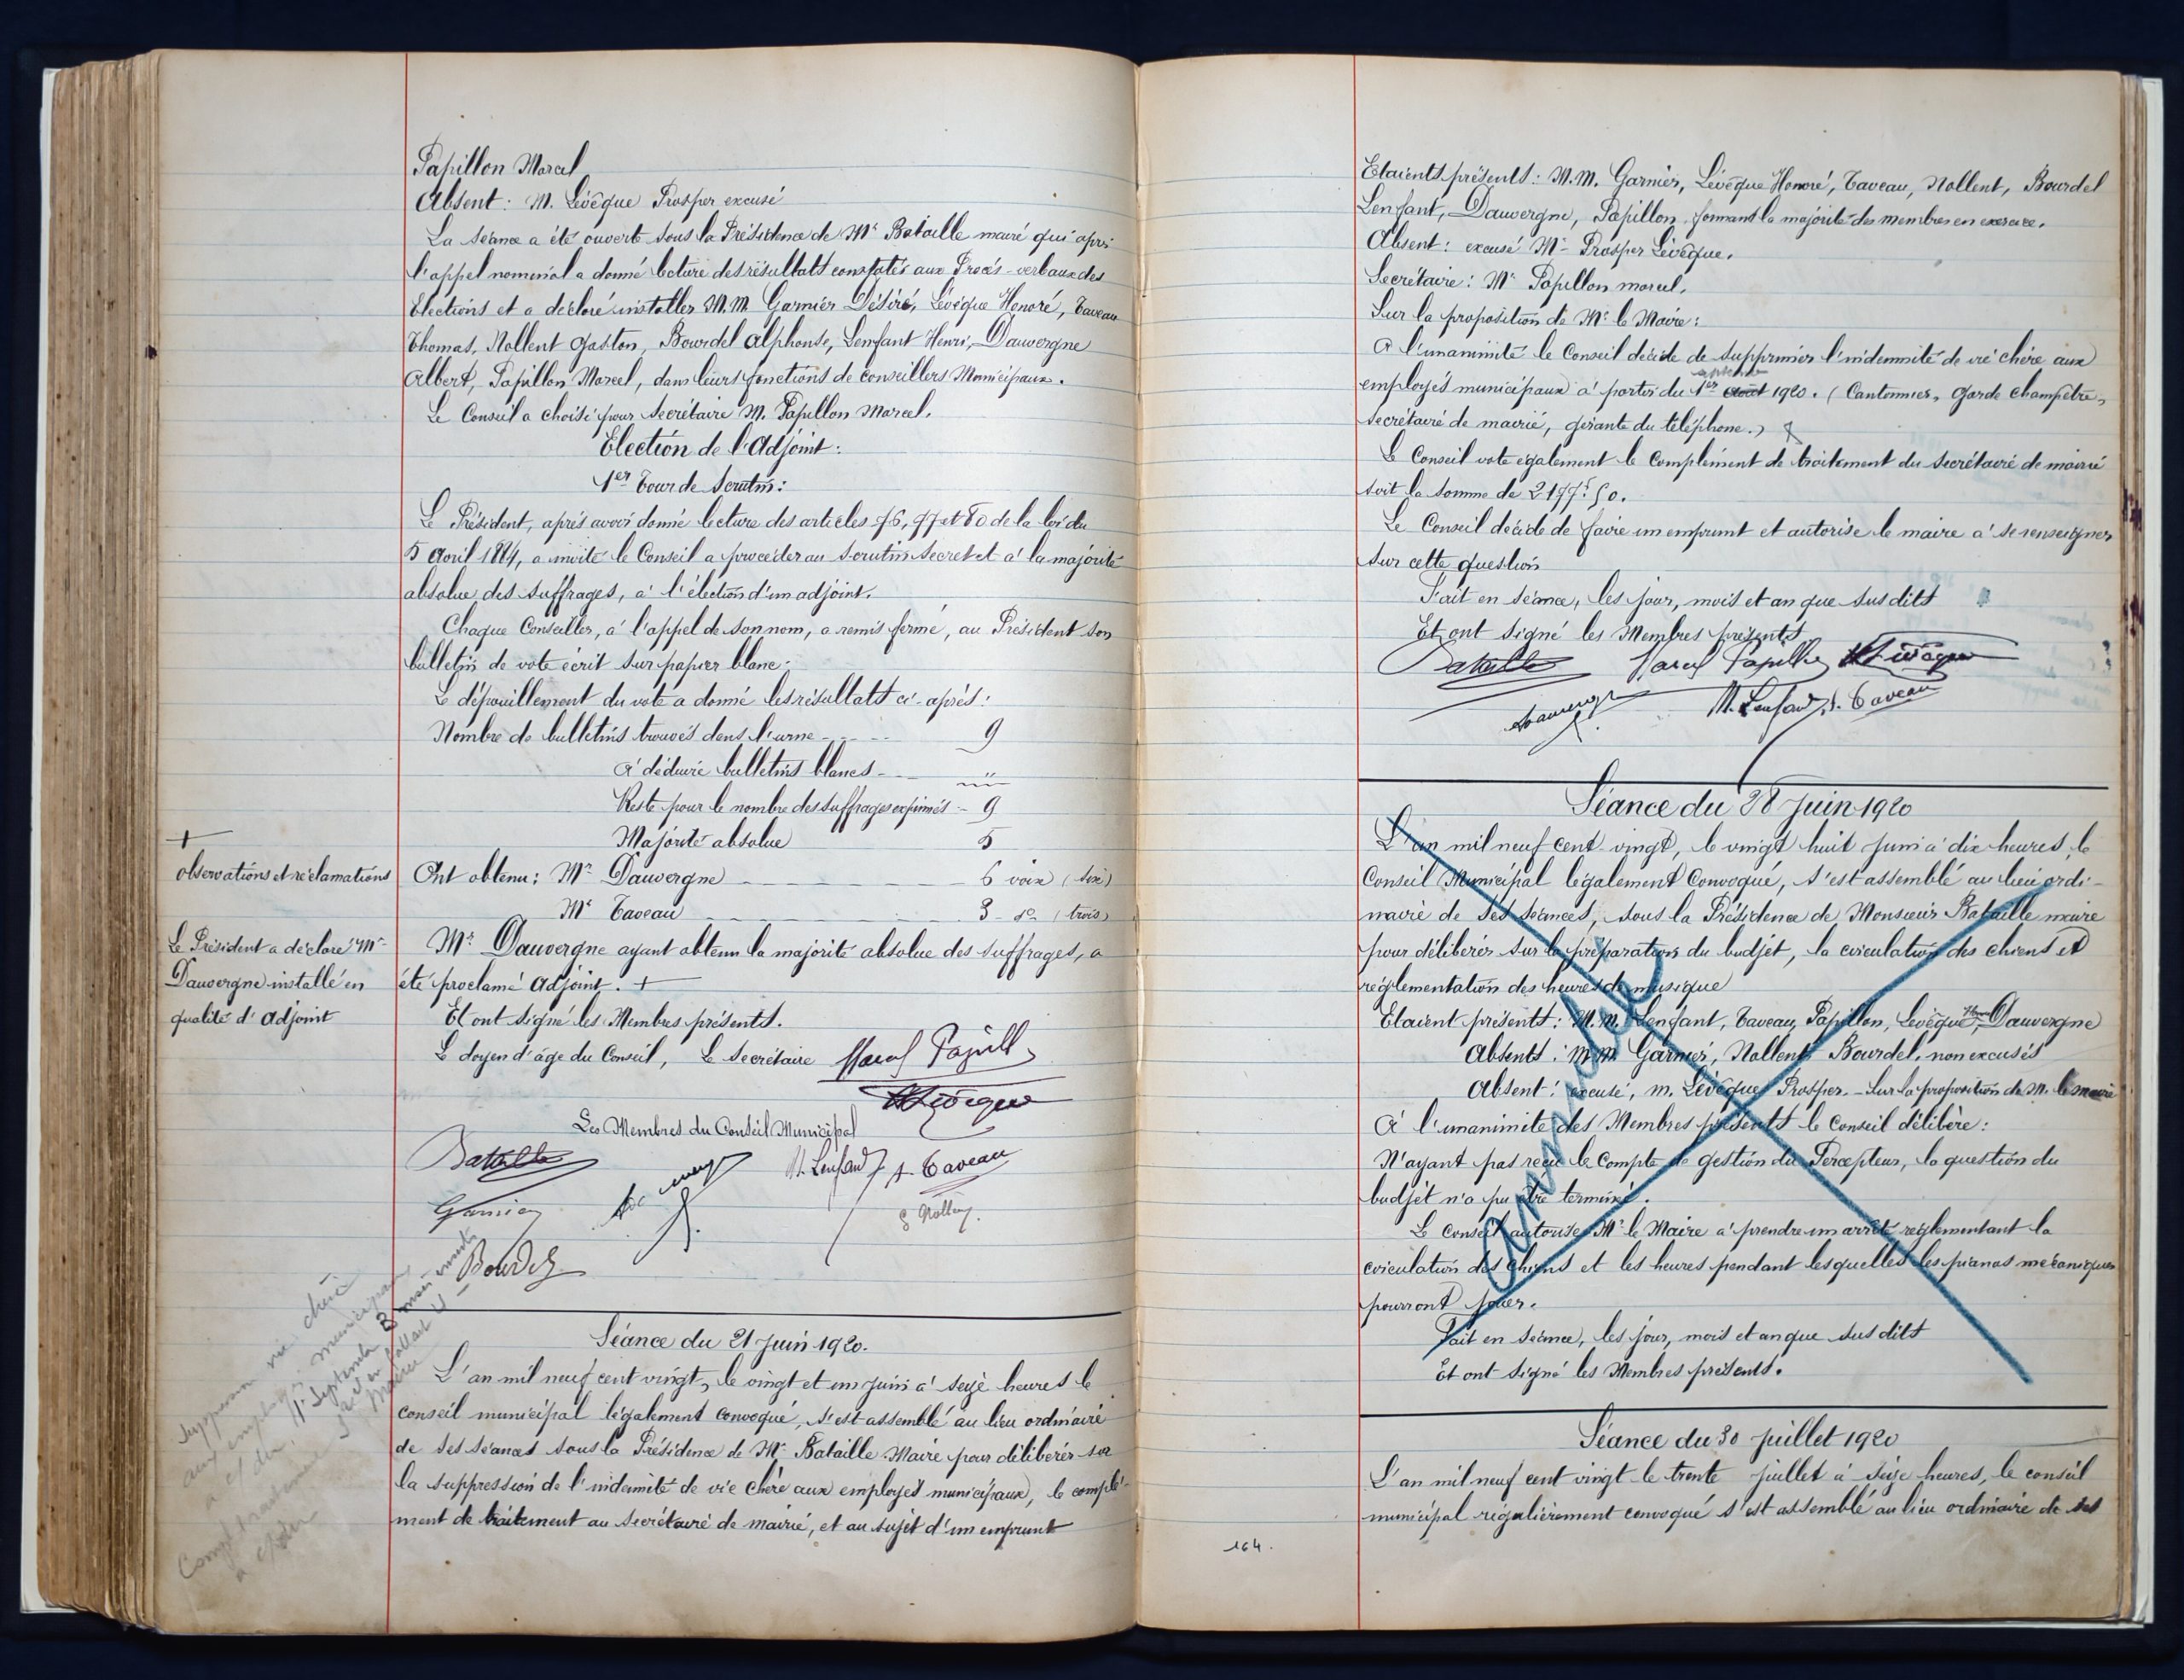 Papillon Marcel
Absent : M. Lévêque Prosper excusé
La séance a été ouverte sous la Présidence de Mr Bataille maire qui après
l'appel nominal a donné lecture des résultats constatés aux Procès-verbaux des
Elections et a déclaré installer M.M. Garnier Désiré, Lévêque Honoré, Taveau
Thomas, Nollent Gaston, Bourdel Alphonse, Lenfant Henri, Dauvergne
Albert, Papillon Marcel, dans leurs fonctions de conseillers Municipaux.
Le Conseil a choisi pour secrétaire M. Papillon Marcel.
Election de l'Adjoint :
1er Tour de Scrutin :
Le Président, après avoir donné lecture des articles 76, 77 et 80 de la loi du
5 Avril 1884, a invité le Conseil a procéder au scrutin secret et à la majorité
absolue des suffrages, à l'élection d'un adjoint.
Chaque Conseiller, à l'appel de son nom, a remis fermé, au Président son
bulletin de vote écrit sur papier blanc.
Le dépouillement du vote a donné les résultats ci-après :
Nombre de bulletins trouvés dans l'urne 9
A déduire bulletins blancs "
Reste pour le nombre des suffrages exprimés 9
Majorité absolue 5
+
observations et réclamations
Ont obtenu : Mr Dauvergne 6 voix (six)
Mr Taveau 3 do (trois)
Le Président a déclaré Mr
Dauvergne installé en
qualité d'Adjoint
Mr Dauvergne ayant obtenu la majorité absolue des suffrages, a
été proclamé Adjoint. +
Et ont signé les Membres présents.
Le doyen d'âge du Conseil, Le Secrétaire Marcel Papillon
H Lévêque
Les Membres du Conseil Municipal
Bataille
H. Lenfant t. Taveau
Garnier
G Nollent
Bourdel
Suppression vie chère
aux employés municipaux
à c/ du 1r Septembre
Mairie
Séance du 21 Juin 1920.
L'an mil neuf cent vingt, le vingt et un juin à seize heures le
conseil municipal légalement convoqué, s'est assemblé au lieu ordinaire
de ses séances sous la Présidence de Mr Bataille Maire pour délibérer sur
la suppression de l'indemité de vie chère aux employés municipaux, le complé-
ment de traitement au secrétaire de mairie, et au sujet d'un emprunt
Etaients présents : M.M. Garnier, Lévêque Honoré, Taveau, Nollent, Bourdel
Lenfant, Dauvergne, Papillon, formant la majorité des membres en exercice.
Absent : excusé Mr Prosper Lévêque.
Secrétaire : Mr Papillon marcel.
Sur la proposition de Mr le Maire :
A l'unanimité le Conseil décide de supprimer l'indemnité de vie chère aux
employés municipaux à partir du 1er août 1920. (Cantonnier, Garde Champêtre,
secrétaire de mairie, gérante du téléphone.)
Le Conseil vote également le complément de traitement du secrétaire de mairie
soit la somme de 2177f.50.
Le Conseil décide de faire un emprunt et autorise le maire à se renseigner
sur cette question
Fait en séance, les jour, mois et an que susdits
Et ont signé les Membres présents
Bataille Marcel Papillon H Lévêque
Dauvergne H. Lenfant t. Taveau
Séance du 28 Juin 1920
L'an mil neuf cent vingt, le vingt huit juin à dix heures, le
Conseil Municipal légalement Convoqué, s'est assemblé au lieu ordi-
naire de ses séances, sous la Présidence de Monsieur Bataille maire
pour délibérer sur la préparation du budjet, la circulation des chiens et
réglementation des heures de musique
Etaient présents : M.M. Lenfant, Taveau, Papillon, Lévêque Honoré, Dauvergne
Absents : M.M. Garnier, Nollent, Bourdel, non excusés
Absent : excusé, M. Lévêque Prosper. - Sur la proposition de M. le maire
A l'unanimité des Membres présents le Conseil délibère :
N'ayant pas reçu le Compte de gestion du Percepteur, la question du
budjet n'a pu être terminé.
Le Conseil autorise Mr le Maire à prendre un arrêté réglementant la
circulation des Chiens et les heures pendant lesquelles les pianos mécaniques
pourront jouer.
Fait en séance, les jour, mois et an que susdits
Et ont signé les Membres présents.
Annulé
Séance du 30 Juillet 1920
L'an mil neuf cent vingt le trente juillet à seize heures, le conseil
municipal régulièrement convoqué s'est assemblé au lieu ordinaire de ses
164.